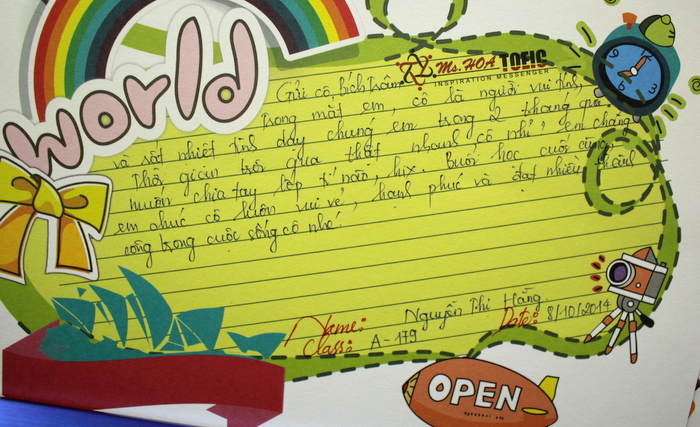 world
Ms. HOA TOEIC
INSPIRATION MESSENGER
Gửi cô Bích Trâm
Trong mắt em, cô là người vui tính,
và rất nhiệt tình dạy chúng em trong 2 tháng qua.
Thời gian trôi qua thật nhanh cô nhỉ, em chẳng
muốn chia tay lớp tí nào, hix. Buổi học cuối cùng,
em chúc cô luôn vui vẻ, hạnh phúc và đạt nhiều thành
công trong cuộc sống cô nhé!
Name: Nguyễn Thị Hằng
Class: A-179
Date: 8/10/2014
OPEN